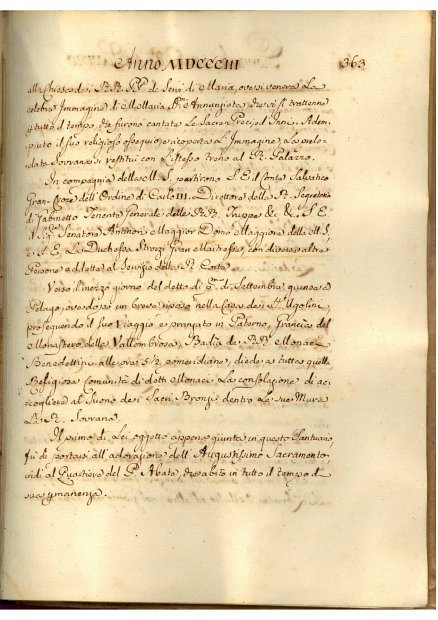 Anno MDCCCIII
363
alla Chiesa dei RR. PP. de Servi di Maria, ove si venera La
celebre Immagine di Maria SS. Annunziata, ove si trattenne
tutto il tempo, che furono cantate le Sacre Preci, ed Inni. Adem-
piuto il suo religioso ossequio, e ricoperta L'Immagine, La prelo-
data Sovrana si restituì con L'istesso treno al R. Palazzo.
In compagnia della M. S. partirono S. E. il Conte Salvatico
Gran Croce dell'Ordine di Carlo III. Direttore della R. Segreteria
di Gabinetto Tenente Generale delle RR. Truppe &c. &c. S. E.
il Senatore Antinori Maggior Domo Maggiore della M. S.
e S. E. La Duchessa Strozzi Gran Maitresse, con diverse altre
Persone addette al Servizio della R. Corte.
Verso il mezzo giorno del detto dì di Settembre giunse a
Pelago, ove dopo un breve riposo nella Casa dei Ugolini
proseguendo il suo Viaggio, e pranzato in Paterno, Grancia del
Monastero della Vallombrosa, Badia de RR. Monaci
Benedettini alle ore 5 1/2 pomeridiane, diede a tutta quella
Religiosa Comunità di detti Monaci La consolazione di ac-
coglierla al Suono dei Sacri Bronzi dentro Le sue Mura
La R. Sovrana.
Il primo di Lei oggetto appena giunta in questo Santuario,
fu di portarsi all'adorazione dell'Augustissimo Sacramento,
indi al Quartiere del P. Abate, che abitò in tutto il tempo di
sua permanenza.